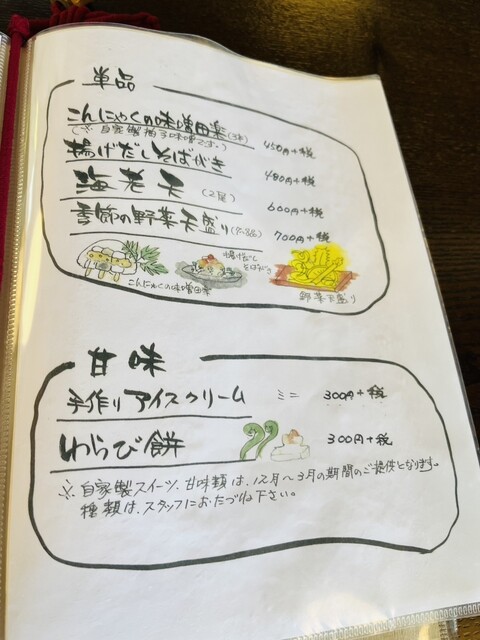 単品
こんにゃくの味噌田楽(3本) 450円+税
(※自家製柚子味噌です。)
揚げだしそばがき 480円+税
海老天(2尾) 600円+税
季節の野菜天盛り(7~8品) 700円+税
揚げだし
そばがき
こんにゃくの味噌田楽
野菜天盛り
甘味
手作りアイスクリーム ミニ 300円+税
わらび餅 300円+税
※自家製スイーツ、甘味類は、12月〜3月の期間のご提供となります。
種類は、スタッフにおたづね下さい。